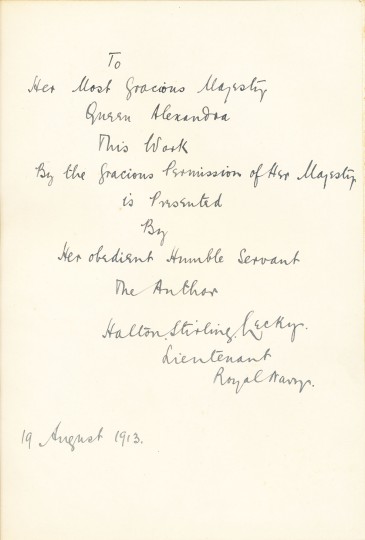 To
Her Most Gracious Majesty
Queen Alexandra
This Work
By the Gracious Permission of Her Majesty
is Presented
By
Her obedient Humble Servant
The Author
Halton Stirling Lecky.
Lieutenant
Royal Navy.
19 August 1913.